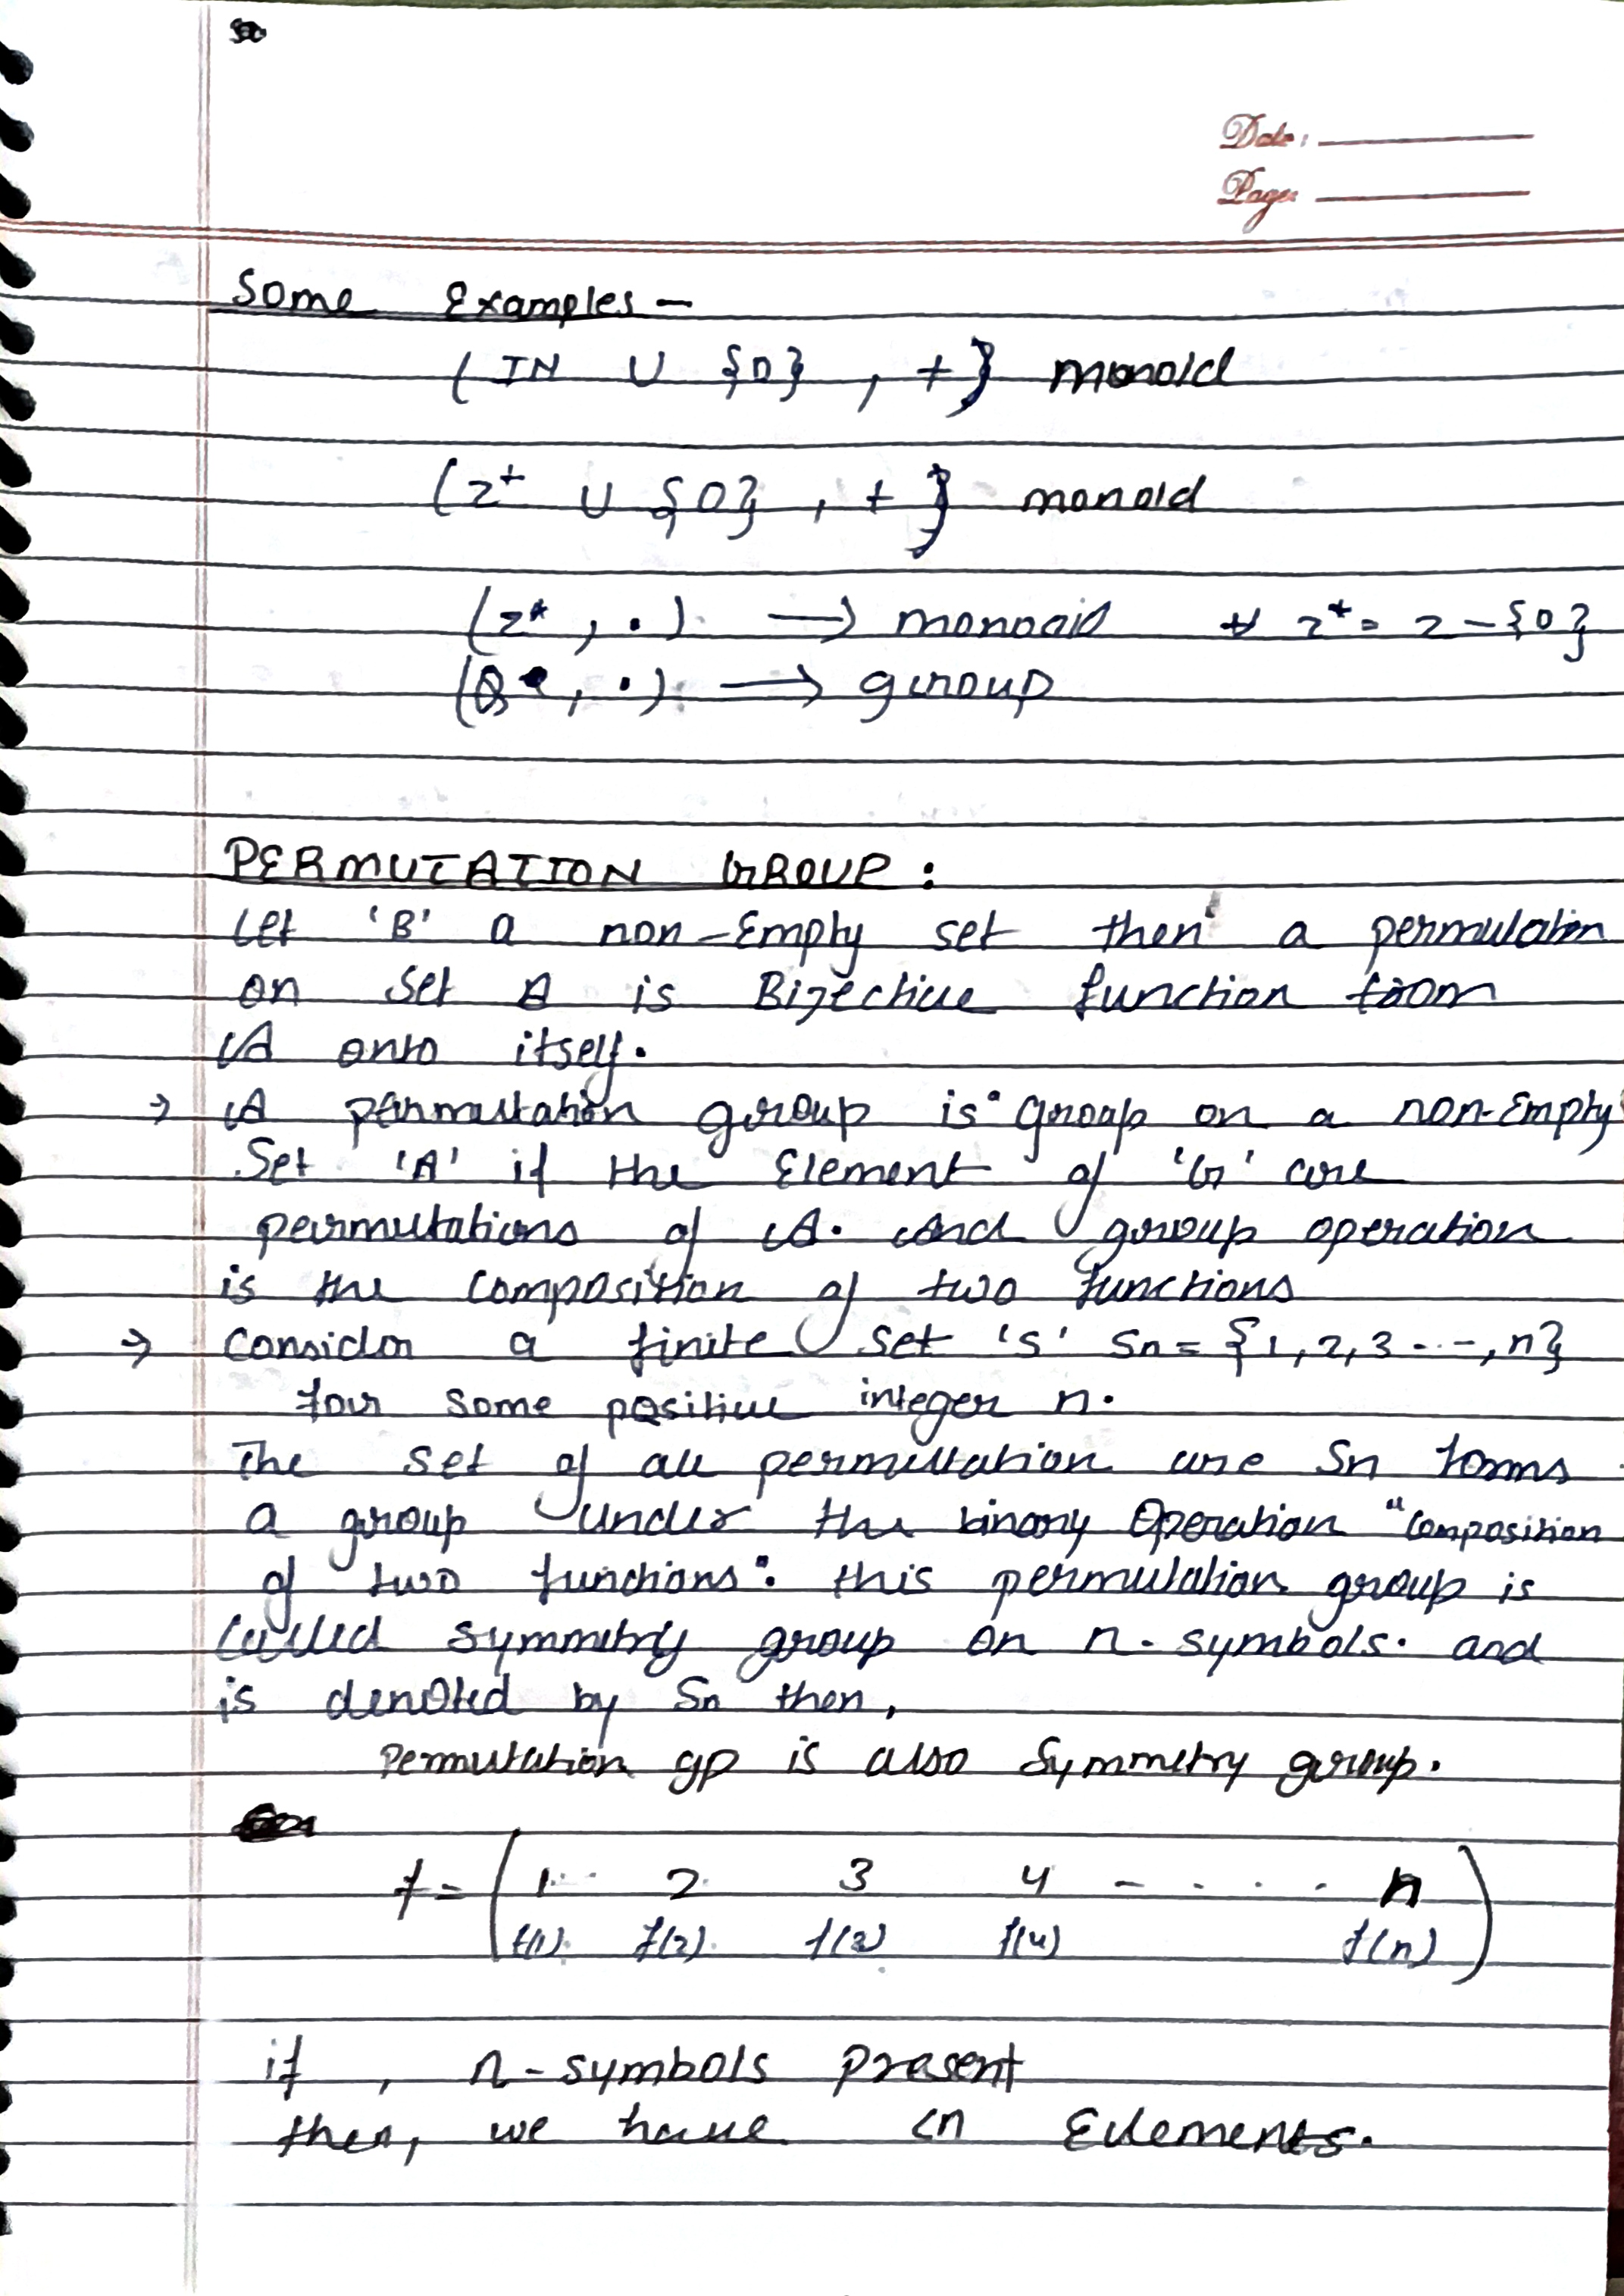 Date:
Page:
Some Examples -
( IN U {0} , + } monoid
( z+ U {0} , + } monoid
(z* , •) → monoaid ∀ z* = z - {0}
(Q* , •) → group
PERMUTATION GROUP :
Let 'B' a non-Empty set then a permutation
on set A is Bijective function from
A onto itself.
→ A permutation group is group on a non-Empty
Set 'A' if the Element of 'G' are
permutations of A. And group operation
is the composition of two functions
→ Consider a finite set 'S' Sn = {1, 2, 3 ---, n}
for some positive integer n.
The set of all permutation are Sn forms
a group under the binary Operation "Composition
of two functions". this permutation group is
called symmetry group on n-symbols. and
is denoted by Sn then,
permutation gp is also Symmetry group.
f = ( 1 2 3 4 - . . . . n )
f(1) f(2) f(3) f(4) f(n)
if , n-symbols present
then, we have Ln Elements.